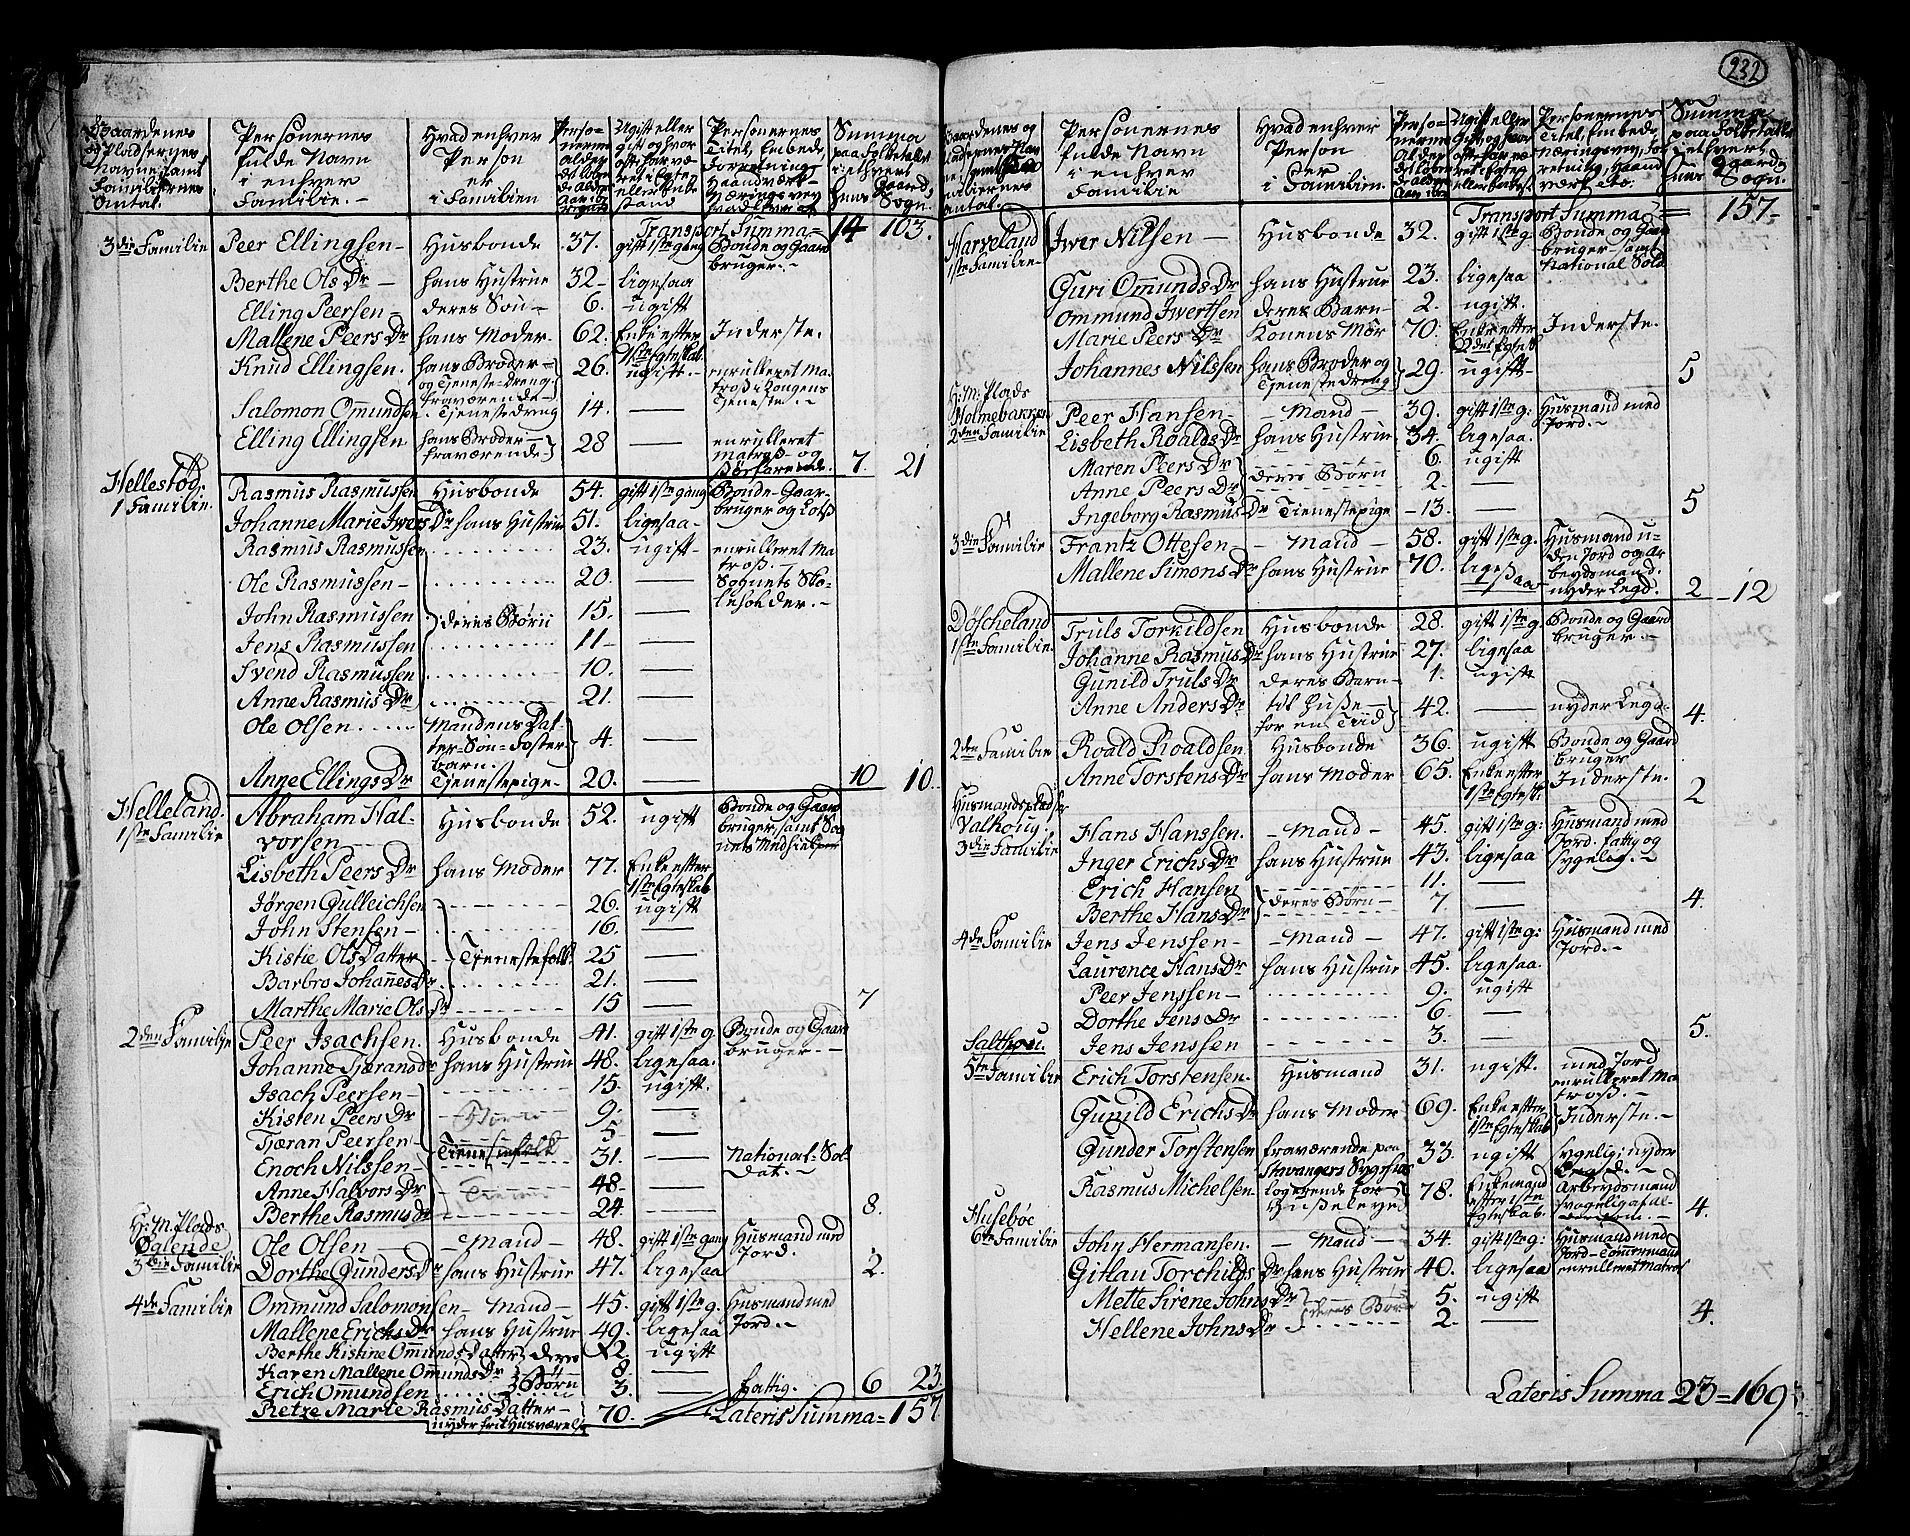 Gaardenes og Pladsernes Navne, samt Familiernes Antal.
Personernes fulde Navn i enhver Familie.
Hvad enhver Person er i Familien
Personernes Alder
Ugift eller gift og hvor ofte har været i Egte eller Enkestand
Personernes Titel, Embede, Forretning, Haandværk, Næringsvey
Summa paa Folketallet i ethvert Huus Gaard Sogn.
Transport Summa = 14 103.
3die Familie Peer Ellingsen - Husbonde 37. gift 1ste gang Bonde og Gaard bruger. -
Berthe Ols Dr - hans Hustrue 32 - ligesaa
Elling Peersen - deres Søn - 6. ugift
Mallene Peers Dr hans Moder. 62. Enke efter 1ste Egteskab. Inderste.
Knud Ellingsen. hans Broder og Tieneste-dreng, fraværende - 26. ugift. - enrulleret Matros i Kongens Tieneste. -
Salomon Omundsen. Tienestedreng 14. -
Elling Ellingsen hans Broder fraværende - 28 - enrulleret matros - og Søefarende. 7. 21
Hellestød.
1 Familie. Rasmus Rasmussen Husbonde 54. gift 1ste gang Bonde - Gaardbruger og Lods
Johanne Marie Iwers Dr hans Hustrue 51. ligesaa -
Rasmus Rasmussen 23. ugift - enrulleret Matros. -
Ole Rasmussen - 20. - Sognets Skoleholder. -
John Rasmussen deres Børn 15. -
Jens Rasmussen 11 - -
Svend Rasmussen 10. -
Anne Rasmus Dr 21. -
Ole Olsen. Mandens Datter-Søn-Foster barn. 4. -
Anne Ellings Dr Tienestepige - 20. - 10 10.
Helleland.
1ste Familie Abraham Halvorsen Husbonde 52. ugift Bonde og Gaardbruger, samt Sognets Medhielper
Lisbeth Peers Dr hans Moder 77. Enke efter 1ste Egteskab
Jørgen Gulleichsen 26. ugift
John Stensen - 16. -
Kistie Ols Datter Tienestefolk 25 -
Barbro Johanes Dr 21. -
Marthe Marie Ols Dr 15 - 7
2den Familie Peer Isachsen. Husbonde 41. gift 1ste g Bonde og Gaardbruger. -
Johanne Tjærands Dr hans Hustrue 48. ligesaa.
Isach Peersen - 15. ugift.
Kisten Peers Dr 9. -
Tjæran Peersen 5 -
Enoch Nilssen - Tienestefolk 31. - National-Soldat. -
Anne Halvors Dr 48 -
Berthe Rasmus Dr 24. - 8.
H: M: Plads Øglende
3die Familie Ole Olsen - Mand - 48. gift 1ste gang Husmand med Jord.
Dorthe Gunders Dr hans Hustrue 47. ligesaa 2.
4de Familie Ommund Salomonsen - Mand - 45. gift 1ste g. Husmand med Jord. -
Mallene Erichs Dr hans Hustrue 49. ligesaa
Berthe Kistine Omunds Datter deres 12. ugift
Karen Mallene Omunds Dr Børn 8. -
Erich Omundsen 3. - fattig. 6 23.
Retze Marie Rasmus Datter - nyder frit Huusværelse 70. Lateris Summa = 157
232
Gaardenes og Pladsernes Navne, samt Familiernes Antal.
Personernes fulde Navn i enhver Familie
Hvad enhver Person er i Familien.
Summa paa Folketallet i ethvert Huus Gaard Sogn.
Transport Summa = 157 -
Harveland
1ste Familie - Iwer Nilsen - Husbonde 32. gift 1ste g: Bonde og Gaardbruger samt National Sold.
Guri Omunds Dr hans Hustrue 23. ligesaa
Ommund Iwersen deres Barn - 2. ugift.
Marie Peers Dr Konens Mor 70. Enke efter 2det Egtesk. Inderste.
Johannes Nilssen hans Broder og Tienestedreng 29. ugift - 5
H: M: Plads Holmebakken
2den Familie Peer Hansen - - Mand - 39. gift 1ste g: Husmand med Jord. -
Lisbeth Roalds Dr hans Hustrue 34. ligesaa.
Maren Peers Dr deres Børn 6. ugift
Anne Peers Dr 2. -
Ingeborg Rasmus Dr Tienestepige - 13. - 5
3die Familie Frantz Ottesen - - Mand - 58. gift 1ste g. Husmand uden Jord og Arbeydsmand.
Mallene Simons Dr hans Hustrue 70. ligesaa nyder Legd. 2 - 12
Døscheland
1ste Familie. Truls Torkildsen Husbonde 28. gift 1ste g Bonde og Gaardbruger. -
Johanne Rasmus Dr hans Hustrue 27. ligesaa
Gunild Truls Dr deres Barn - 1. ugift
Anne Anders Dr til Huse - for en Tiid 42. - nyder Legd. 4.
2den Familie Roald Roaldsen Husbonde 36. ugift Bonde og Gaardbruger
Anne Torstens Dr hans Moder 65. Enke efter 1ste Egtesk. Inderste. 2
Husmandspladser Valhoug.
3die Familie Hans Hanssen. - Mand - 45. gift 1ste g: Husmand med Jord. fattig og sygelig. -
Inger Erichs Dr hans Hustrue 43. ligesaa
Erich Hansen deres Børn - 11. -
Berthe Hans Dr 7 - 4.
4de Familie Jens Jenssen - - Mand - 47. gift 1ste g: Husmand med Jord. -
Laurence Hans Dr hans Hustrue 45. ligesaa.
Peer Jenssen - 9. ugift
Dorthe Jens Dr 6. -
Jens Jenssen 3. - 5.
Salthou.
5te Familie Erich Torstensen. Husmand 31. ugift. med Jord enrulleret Matros. -
Gunild Erichs Dr hans Moder 69. Enke efter 1ste Egteskab Inderste. -
Gunder Torstensen fraværende paa Stavangers Sygehus 33. ugift sygelig; nyder Legd. -
Rasmus Michelsen logerende for Huusleyed 78. Enkemand efter 1ste Egteskab. Arbeydsmand svagelig af alderdom. - 4.
Husebøe
6te Familie John Hermansen. - Mand - 34. gift 1ste g: Husmand med Jord - Tømmermand enrulleret Matros
Gitlau Torchilds Dr hans Hustrue 40. ligesaa
Mette Sirene Johns Dr deres Børn 5. ugift
Hellene Johns Dr 2. - 4.
Lateris Summa 23 = 169